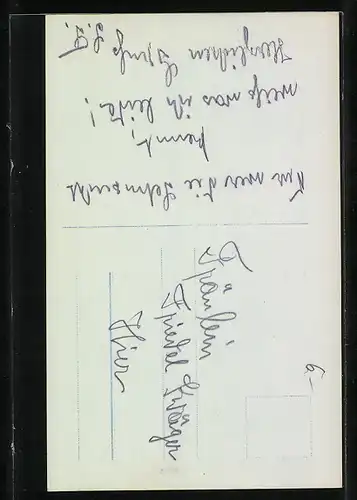 Nur wer die Sehnsucht
kennt,
weiß was ich leide!
Herzlichen Gruß
Fräulein
Friedel
Hier
6-